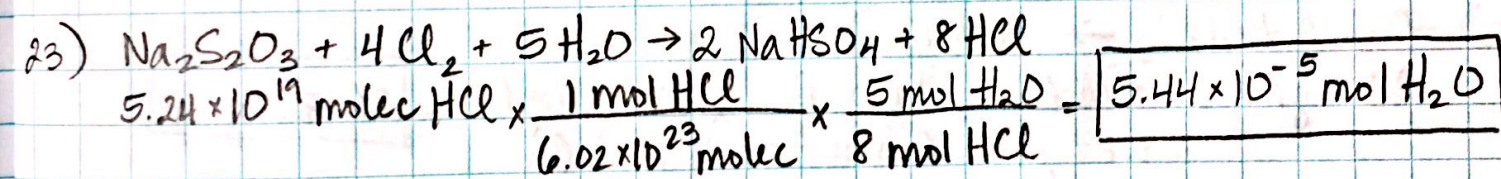 23) Na₂S₂O₃ + 4 Cl₂ + 5 H₂O → 2 NaHSO₄ + 8 HCl
5.24 × 10¹⁹ molec HCl × 1 mol HCl / 6.02×10²³ molec × 5 mol H₂O / 8 mol HCl = 5.44 × 10⁻⁵ mol H₂O